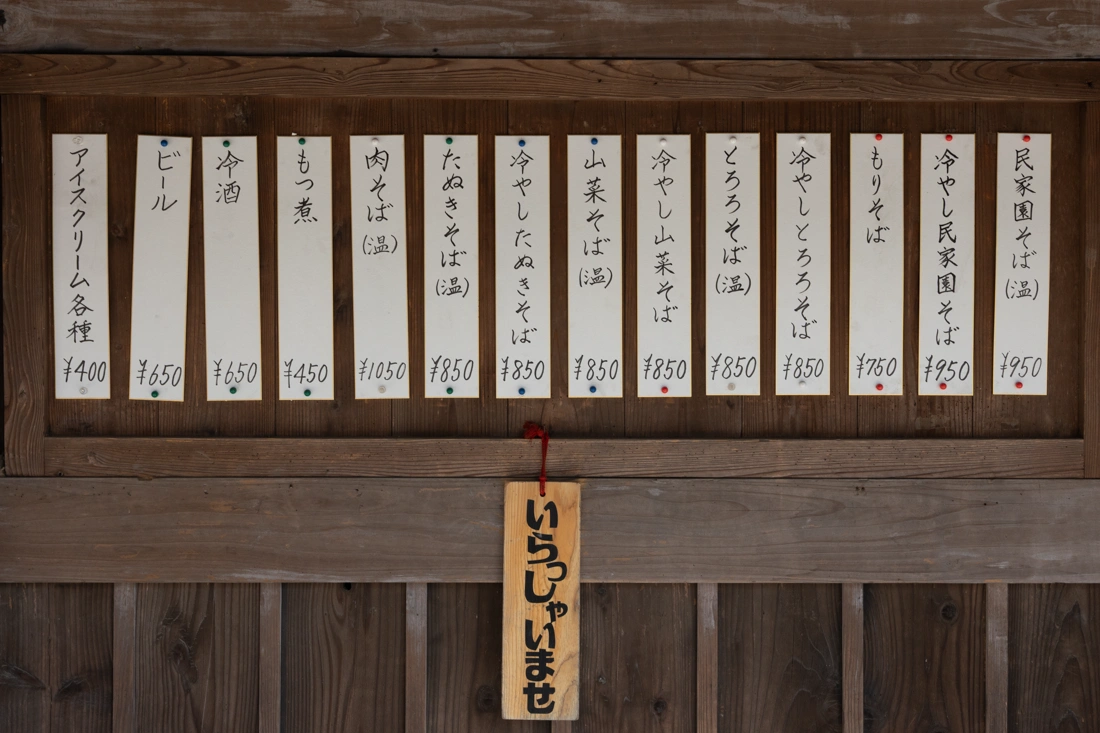 民家園そば(温)
¥950
冷やし民家園そば
¥950
もりそば
¥750
冷やしとろろそば
¥850
とろろそば(温)
¥850
冷やし山菜そば
¥850
山菜そば(温)
¥850
冷やしたぬきそば
¥850
たぬきそば(温)
¥850
肉そば(温)
¥1050
もつ煮
¥450
冷酒
¥650
ビール
¥650
アイスクリーム各種
¥400
いらっしゃいませ